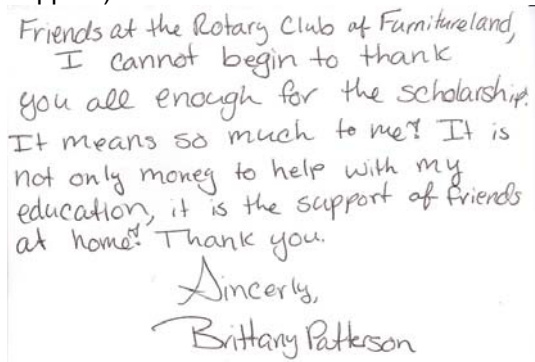 Friends at the Rotary Club of Furnitureland,
I cannot begin to thank
you all enough for the scholarship.
It means so much to me! It is
not only money to help with my
education, it is the support of friends
at home! Thank you.
Sincerly,
Brittany Patterson